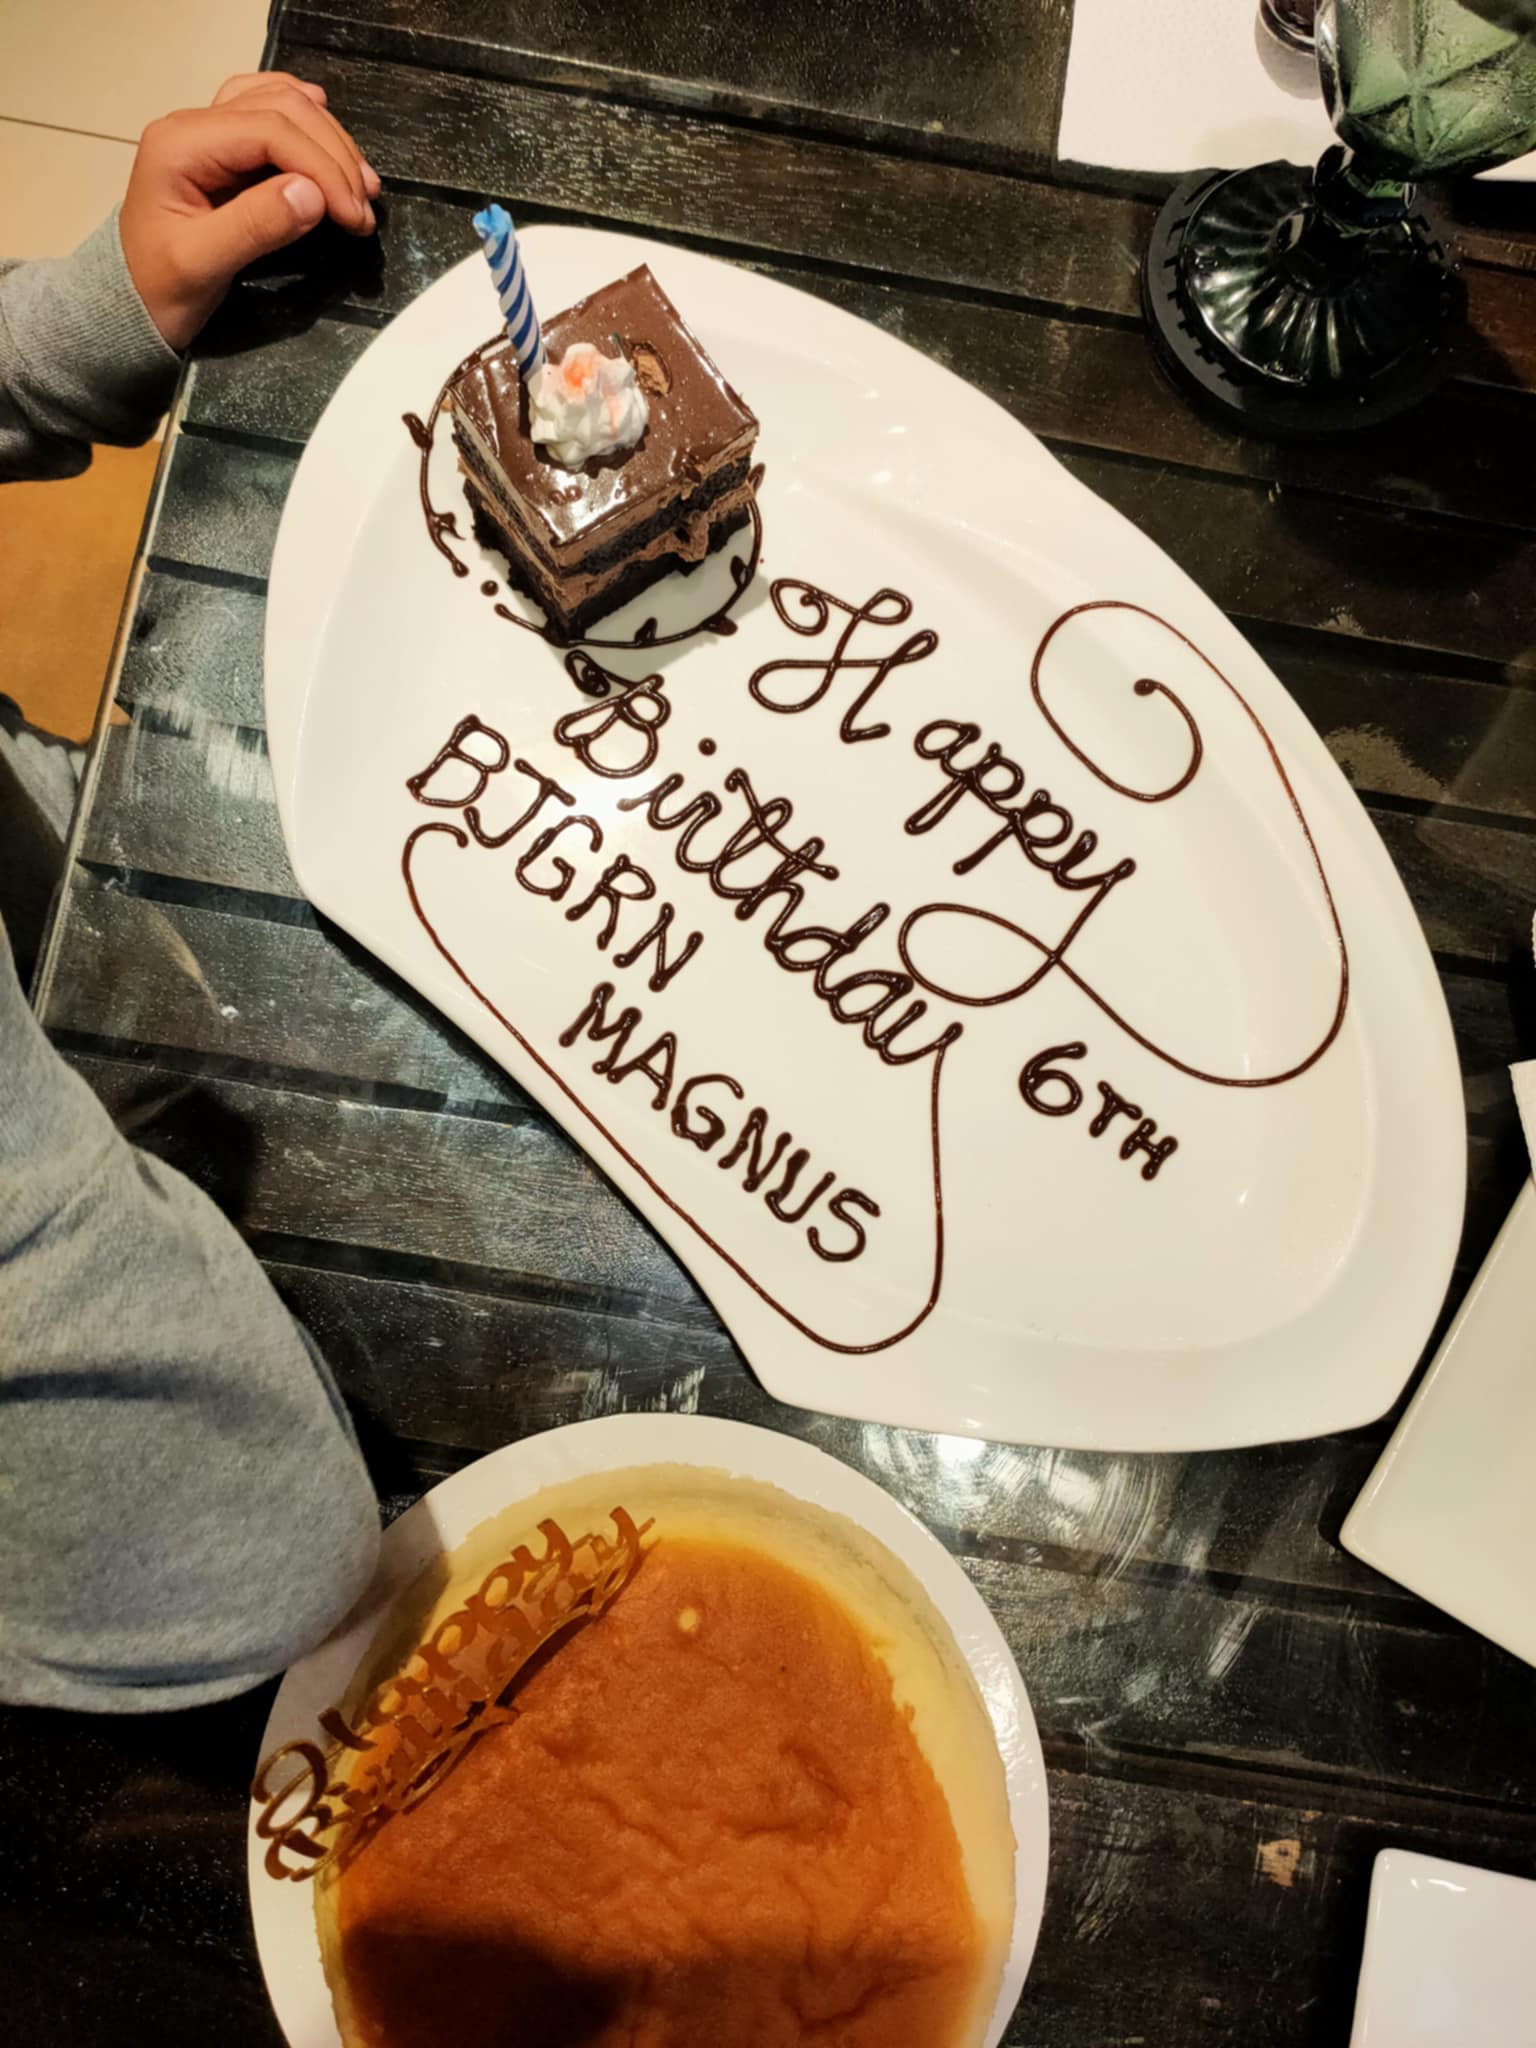 Happy
Birthday 6TH
BJGRN
MAGNUS
Happy
Birthday